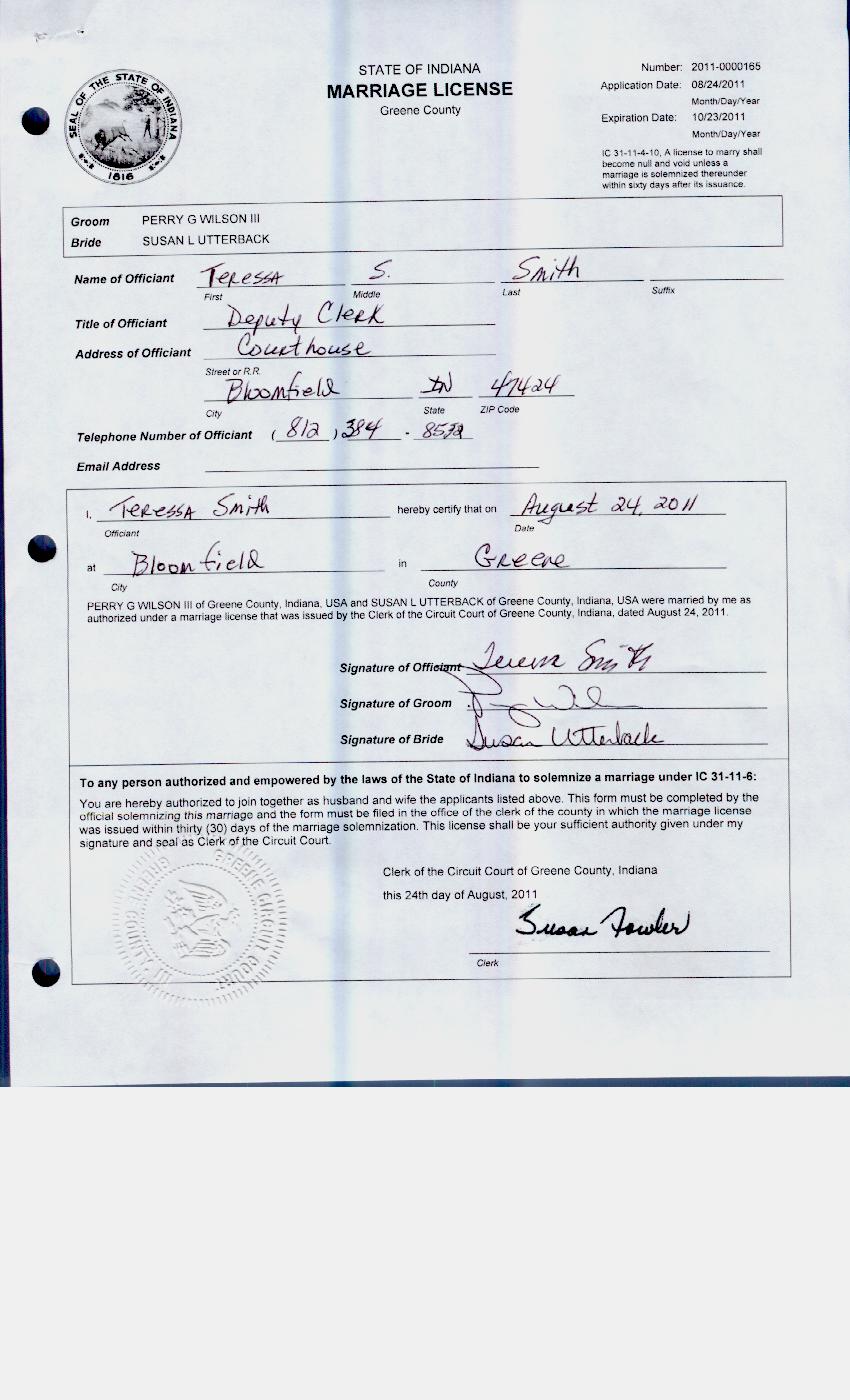 SEAL OF THE STATE OF INDIANA
1816
STATE OF INDIANA
MARRIAGE LICENSE
Greene County
Number: 2011-0000165
Application Date: 08/24/2011
Month/Day/Year
Expiration Date: 10/23/2011
Month/Day/Year
IC 31-11-4-10, A license to marry shall
become null and void unless a
marriage is solemnized thereunder
within sixty days after its issuance.
Groom PERRY G WILSON III
Bride SUSAN L UTTERBACK
Name of Officiant Teressa S. Smith
First Middle Last Suffix
Title of Officiant Deputy Clerk
Address of Officiant Courthouse
Street or R.R.
Bloomfield IN 47424
City State ZIP Code
Telephone Number of Officiant (812) 384 - 8532
Email Address
I, Teressa Smith hereby certify that on August 24, 2011
Officiant Date
at Bloomfield in Greene
City County
PERRY G WILSON III of Greene County, Indiana, USA and SUSAN L UTTERBACK of Greene County, Indiana, USA were married by me as
authorized under a marriage license that was issued by the Clerk of the Circuit Court of Greene County, Indiana, dated August 24, 2011.
Signature of Officiant Teressa Smith
Signature of Groom
Signature of Bride Susan Utterback
To any person authorized and empowered by the laws of the State of Indiana to solemnize a marriage under IC 31-11-6:
You are hereby authorized to join together as husband and wife the applicants listed above. This form must be completed by the
official solemnizing this marriage and the form must be filed in the office of the clerk of the county in which the marriage license
was issued within thirty (30) days of the marriage solemnization. This license shall be your sufficient authority given under my
signature and seal as Clerk of the Circuit Court.
Clerk of the Circuit Court of Greene County, Indiana
this 24th day of August, 2011
Susan Fowler
Clerk